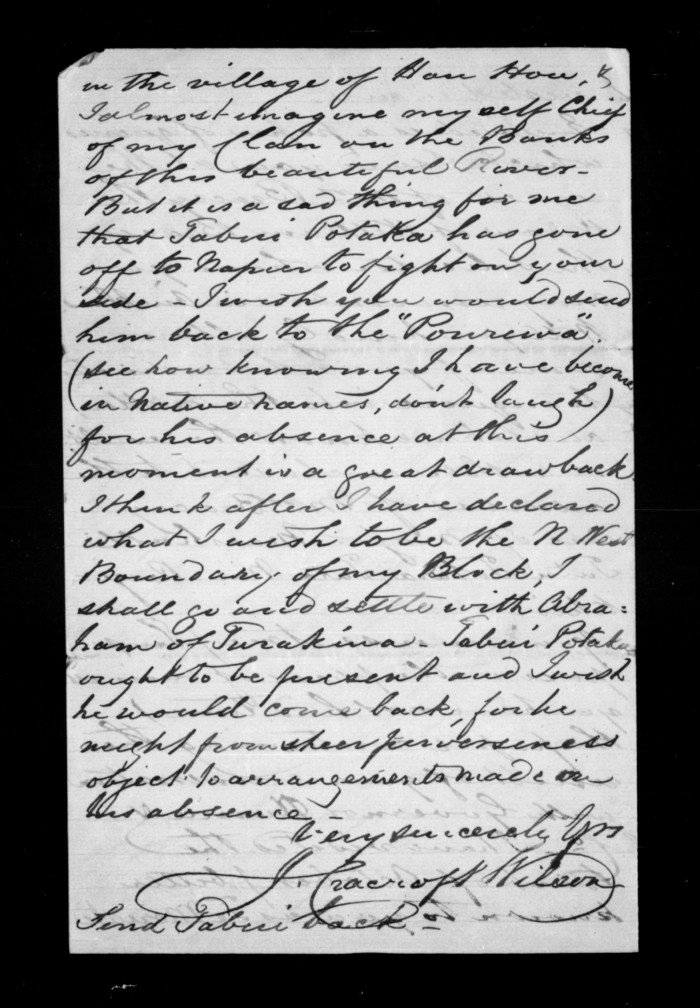 in the village of Hou Hou, &
I almost imagine myself Chief
of my Clan on the Banks
of this beautiful River -
But it is a sad thing for me
that Tabui Potaka has gone
off to Napier to fight on your
side - I wish you would send
him back to the "Pourewa".
(see how knowing I have become
in Native names, don't laugh)
for his absence at this
moment is a great drawback.
I think after I have declared
what I wish to be the N West
Boundary of my Block, I
shall go and settle with Abra=
ham of Turakina - Tabui Potaka
ought to be present and I wish
he would come back, for he
might from sheer perverseness
object to arrangements made in
his absence -
Very sincerely Yrs
J. Cracroft Wilson
Send Tabui back =